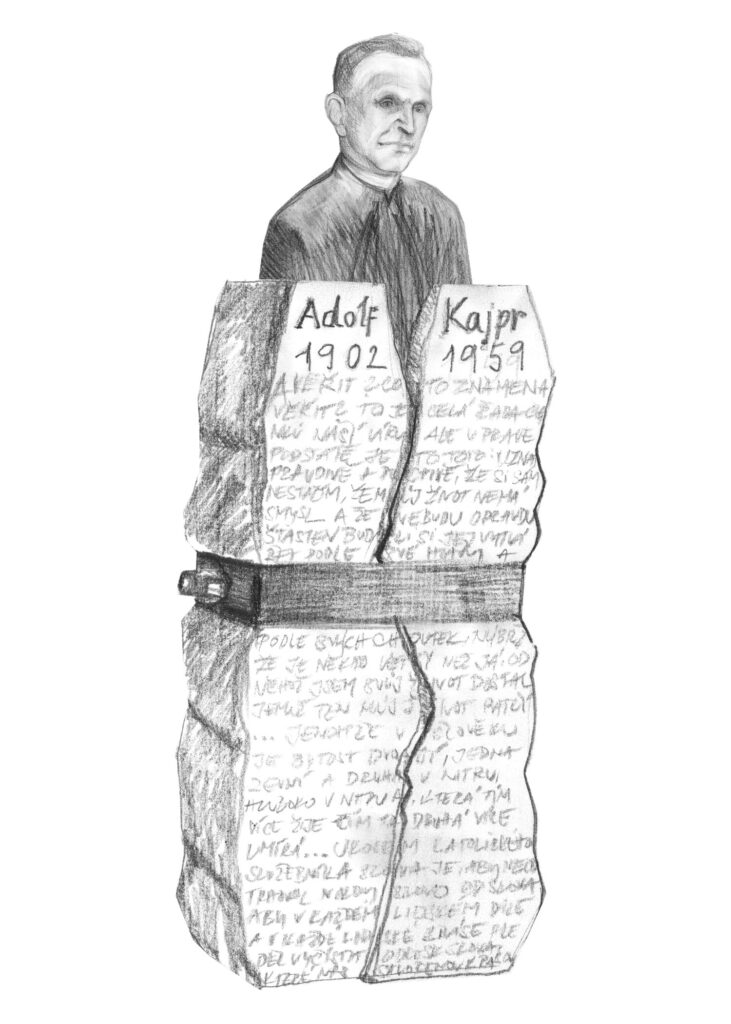 Adolf Kajpr
1902 1959
A VĚŘIT? CO TO ZNAMENÁ
VĚŘIT? TO JE CELÁ ŘADA
NAŠÍ VÍRY ALE V PRAVÉ
PODSTATĚ JE TO TOTO: UZNAT
PRAVDIVĚ A POCTIVĚ, ŽE SI SÁM
NESTAČÍM, ŽE MŮJ ŽIVOT NEMÁ
SMYSL A ŽE NEBUDU OPRAVDU
ŠŤASTEN BUDU LI SI JEJ
PODLE SVÉ HLAVY A
PODLE SVÝCH CHOUTEK, NÝBRŽ
ŽE JE NĚKDO VĚTŠÍ NEŽ JÁ, OD
NĚHOŽ JSEM SVŮJ ŽIVOT DOSTAL
JEMUŽ TEN MŮJ ŽIVOT PATŘÍ
... JENOMŽE V ČLOVĚKU
JE BYTOST DVOJÍ, JEDNA
ZEVNÍ A DRUHÁ V NITRU,
HLUBOKO V NITRU A, KTERÁ TÍM
VÍCE ŽIJE ČÍM TA DRUHÁ VÍCE
UMÍRÁ... ÚKOLEM KATOLICKÉHO
SLUŽEBNÍKA SLOVA JE, ABY
NIKDY SLOVO OD SLOVA
ABY V KAŽDÉM LIDSKÉM DÍLE
A V KAŽDÉ LIDSKÉ
SLOVA,
KTERÉ NÁS